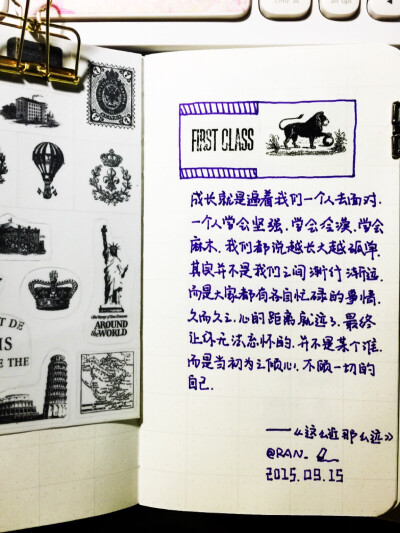 T DE
IS
E THE
The Voyage of Your Dreams
AROUND
THE WORLD
FIRST CLASS
成长就是逼着我们一个人去面对.
一个人学会坚强、学会冷漠、学会
麻木、我们都说越长大越孤单.
其实并不是我们之间渐行渐远.
而是大家都有各自忙碌的事情.
久而久之、心的距离就远了、最终
让你无法忘怀的、并不是某个谁.
而是当初为之倾心、不顾一切的
自己.
——《这么近那么远》
@RAN.
2015.09.15